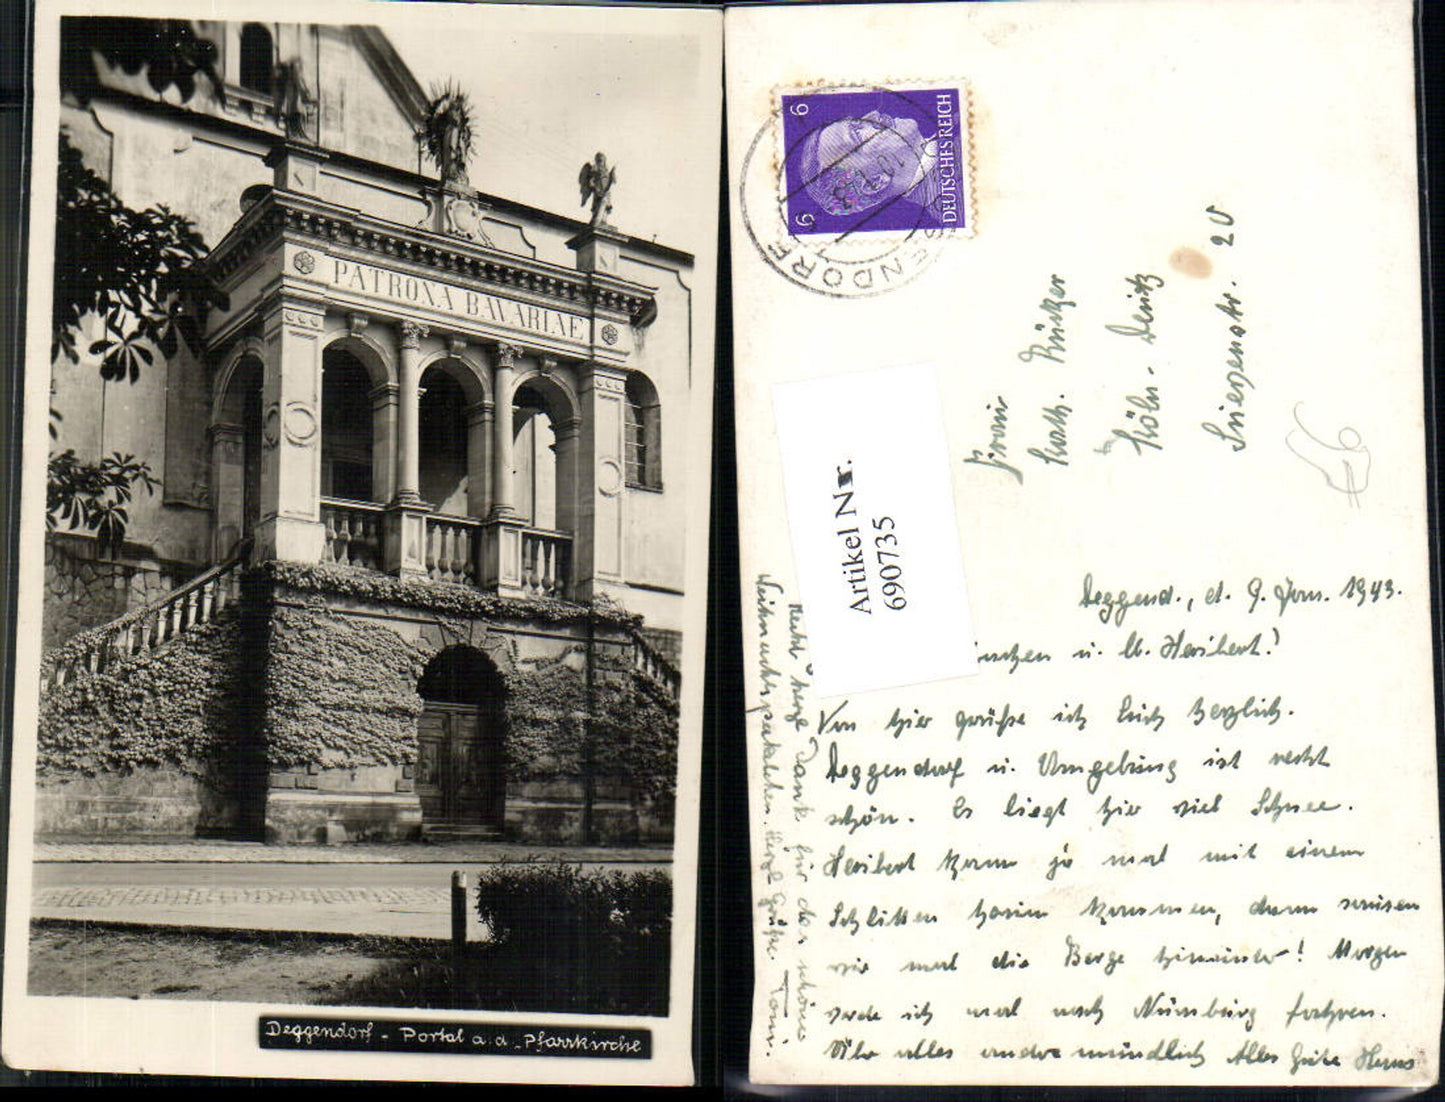 PATRONA BAVARIAE
Deggendorf - Portal a. d. Pfarrkirche
6 6
DEUTSCHES REICH
Artikel Nr.
690735
Frau
Kath.
Köln - Deutz
20
Deggend., d. 9. Jan. 1943.
u. lb. Heribert!
Von hier grüße ich Euch herzlich.
Deggendorf u. Umgebung ist recht
schön. Es liegt hier viel Schnee.
Heribert kann ja mal mit einem
Schlitten kommen, dann sausen
wir mal die Berge hinunter! Morgen
werde ich mal nach Nürnberg fahren.
alles andre mündlich Alles Gute Hans
Recht herzl Dank für das schöne
Weihnachtspaketchen. Herzl Grüße Toni.